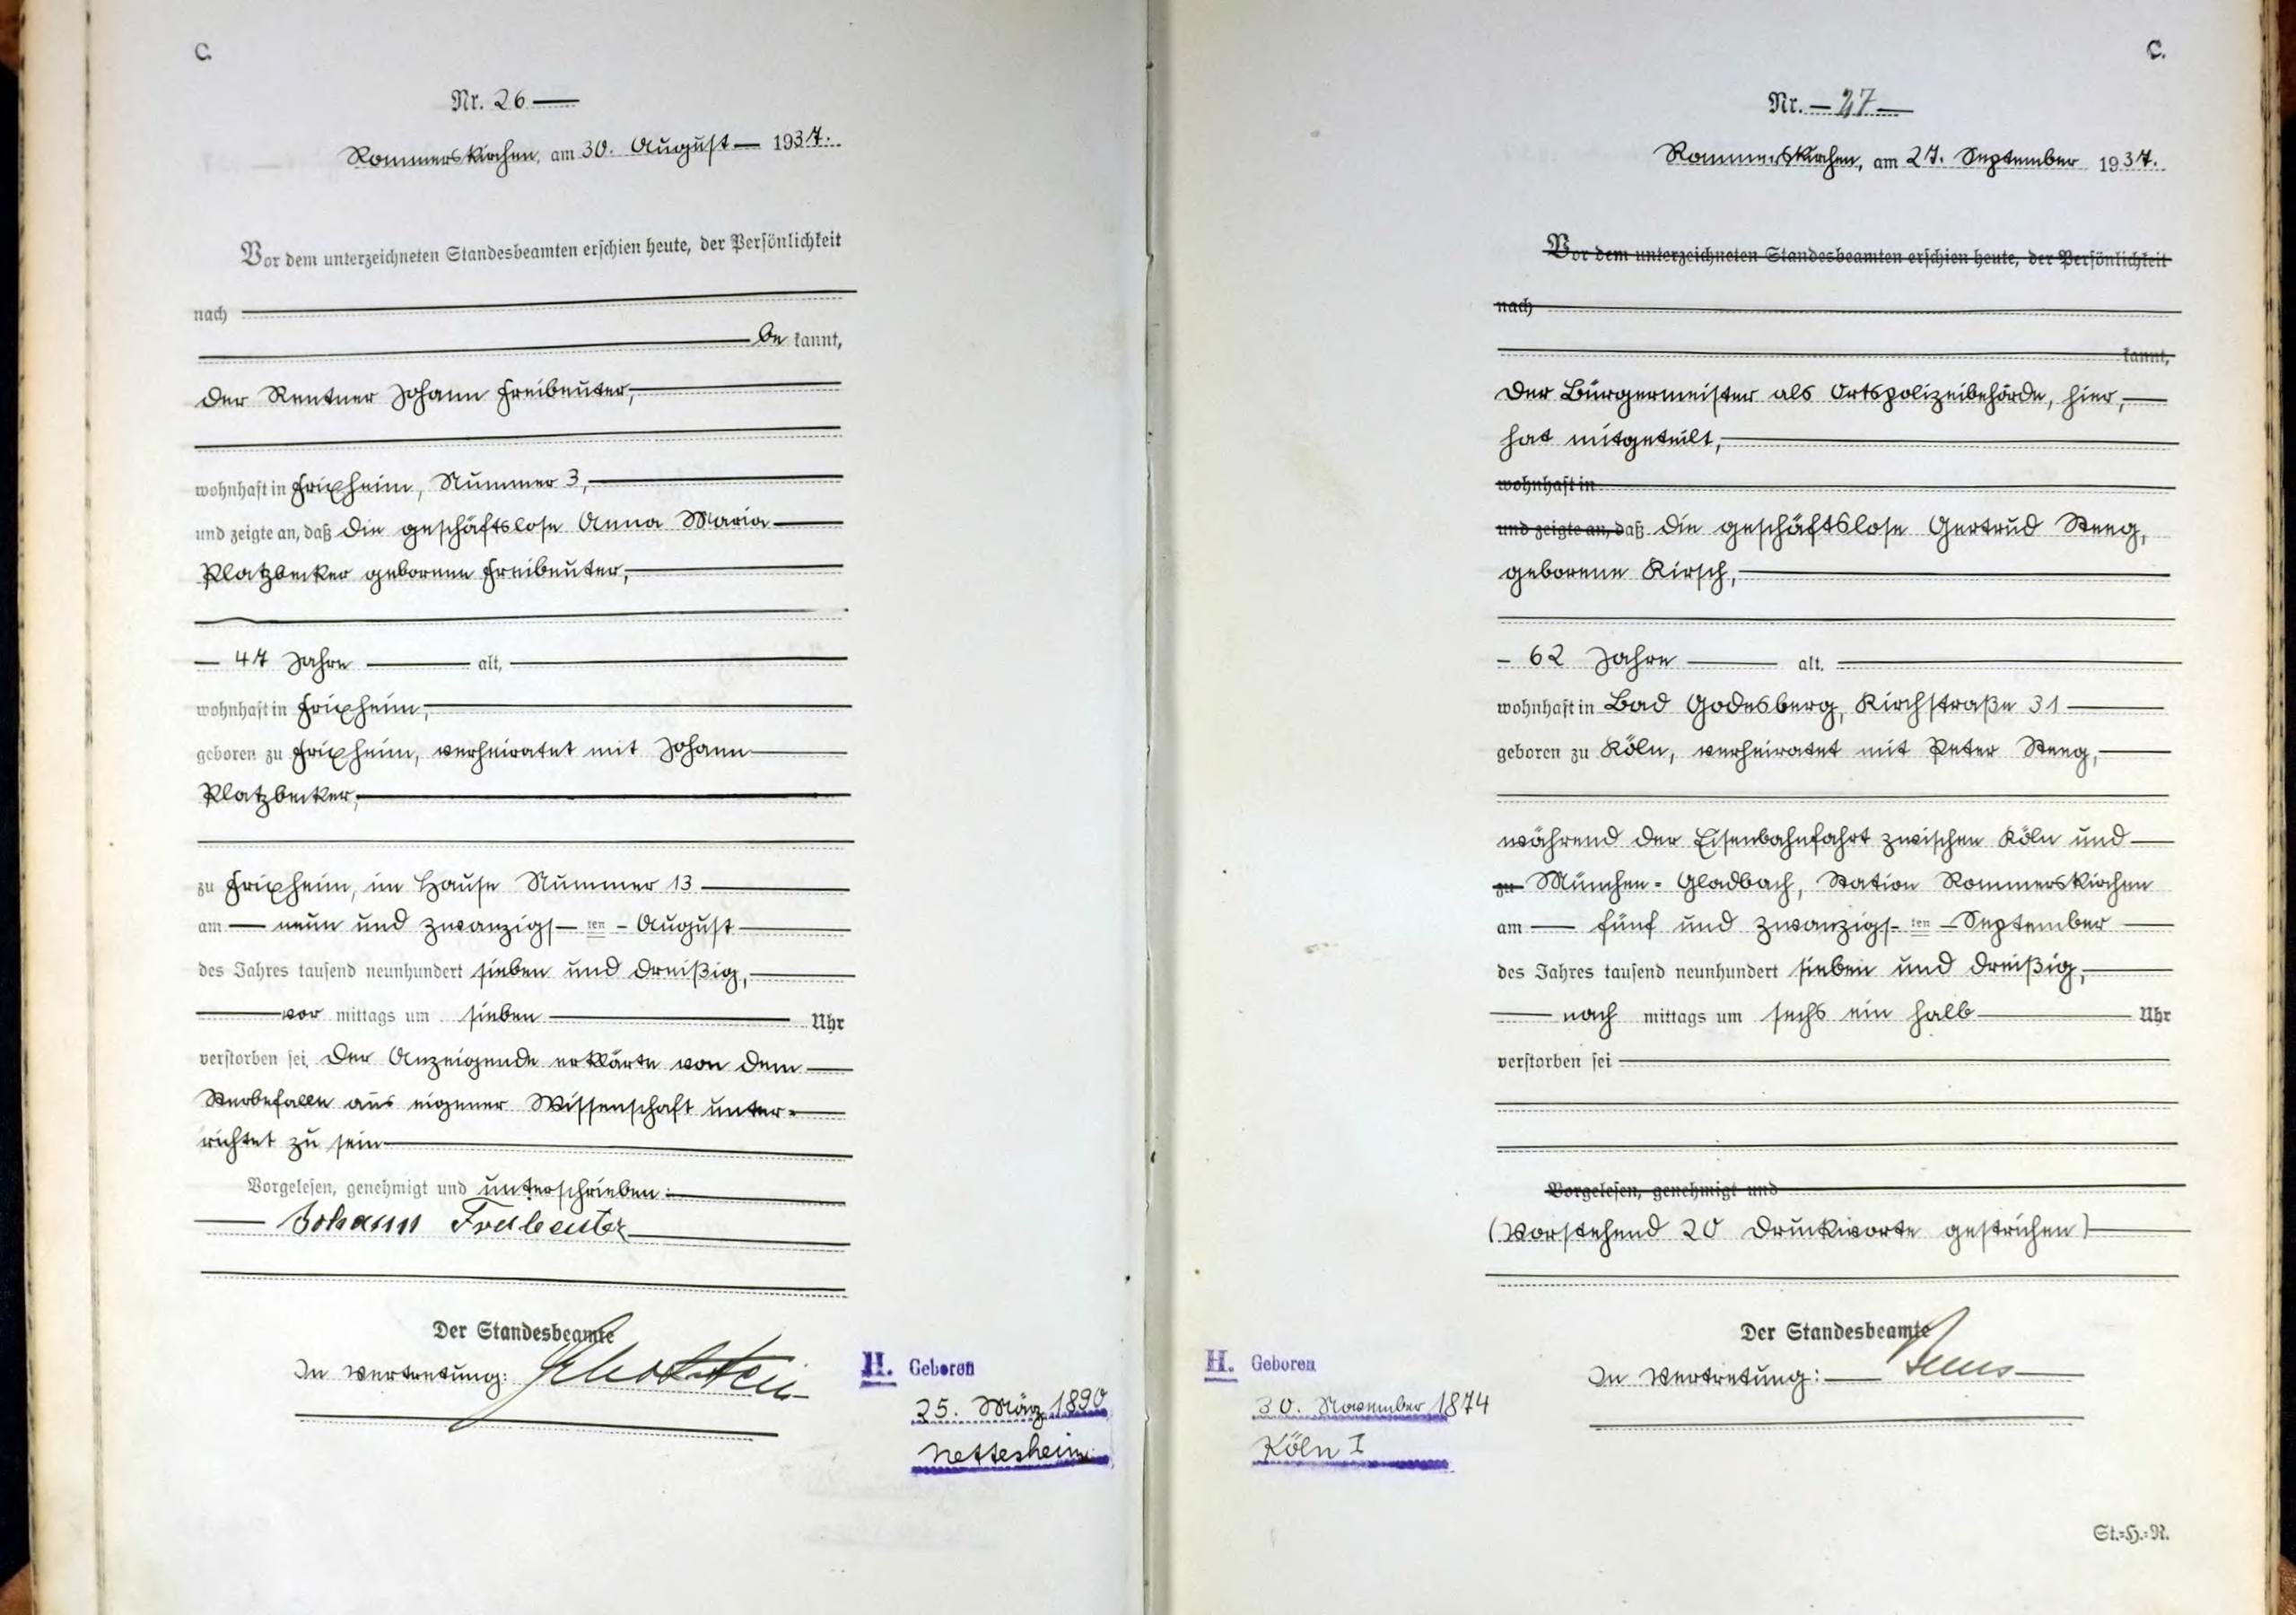 C.
Nr. 26
Rommerskirchen, am 30. August 1937.
Vor dem unterzeichneten Standesbeamten erschien heute, der Persönlichkeit
nach
be kannt,
der Rentner Johann Freibeuter,
wohnhaft in Frixheim, Nummer 3,
und zeigte an, daß die geschäftslose Anna Maria
Platzbecker geborene Freibeuter,
47 Jahre alt,
wohnhaft in Frixheim,
geboren zu Frixheim, verheiratet mit Johann
Platzbecker,
zu Frixheim, im Hause Nummer 13
am neun und zwanzigs- ten - August
des Jahres tausend neunhundert sieben und dreißig,
vor mittags um sieben Uhr
verstorben sei. Der Anzeigende erklärte von dem
Sterbefalle aus eigener Wissenschaft unter-
richtet zu sein
Vorgelesen, genehmigt und unterschrieben:
Johann Freibeuter
Der Standesbeamte
In Vertretung:
H. Geboren
25. März 1890
Nettesheim
C.
Nr. 27
Rommerskirchen, am 27. September 1937.
Vor dem unterzeichneten Standesbeamten erschien heute, der Persönlichkeit
nach
kannt,
Der Bürgermeister als Ortspolizeibehörde, hier,
hat mitgeteilt,
wohnhaft in
und zeigte an, daß die geschäftslose Gertrud Steeg,
geborene Kirsch,
- 62 Jahre alt.
wohnhaft in Bad Godesberg, Kirchstraße 31
geboren zu Köln, verheiratet mit Peter Steeg,
während der Eisenbahnfahrt zwischen Köln und
zu München-Gladbach, Station Rommerskirchen
am fünf und zwanzigs- ten - September
des Jahres tausend neunhundert sieben und dreißig,
nach mittags um sechs ein halb Uhr
verstorben sei
Vorgelesen, genehmigt und
(Vorstehend 20 Druckworte gestrichen)
Der Standesbeamte
In Vertretung:
H. Geboren
30. November 1874
Köln I
St.-H.-R.